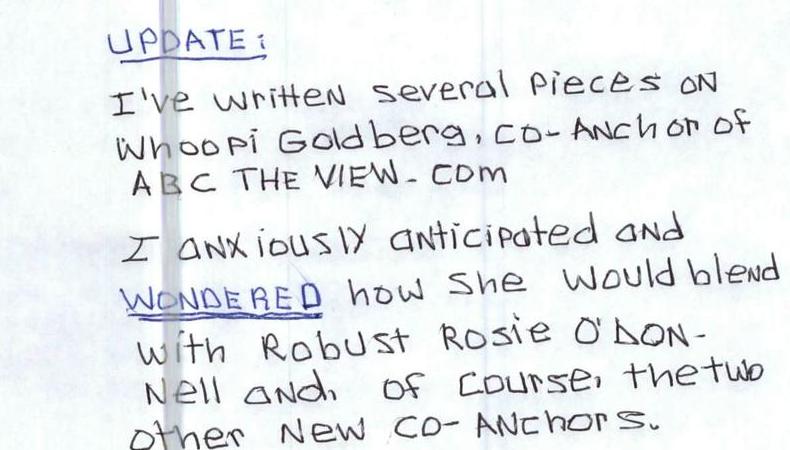 UPDATE:
I've written several pieces on
Whoopi Goldberg, co-anchor of
ABC THE VIEW. COM
I anxiously anticipated and
WONDERED how she would blend
with Robust Rosie O'DON-
Nell and, of course, the two
other New co-Anchors.